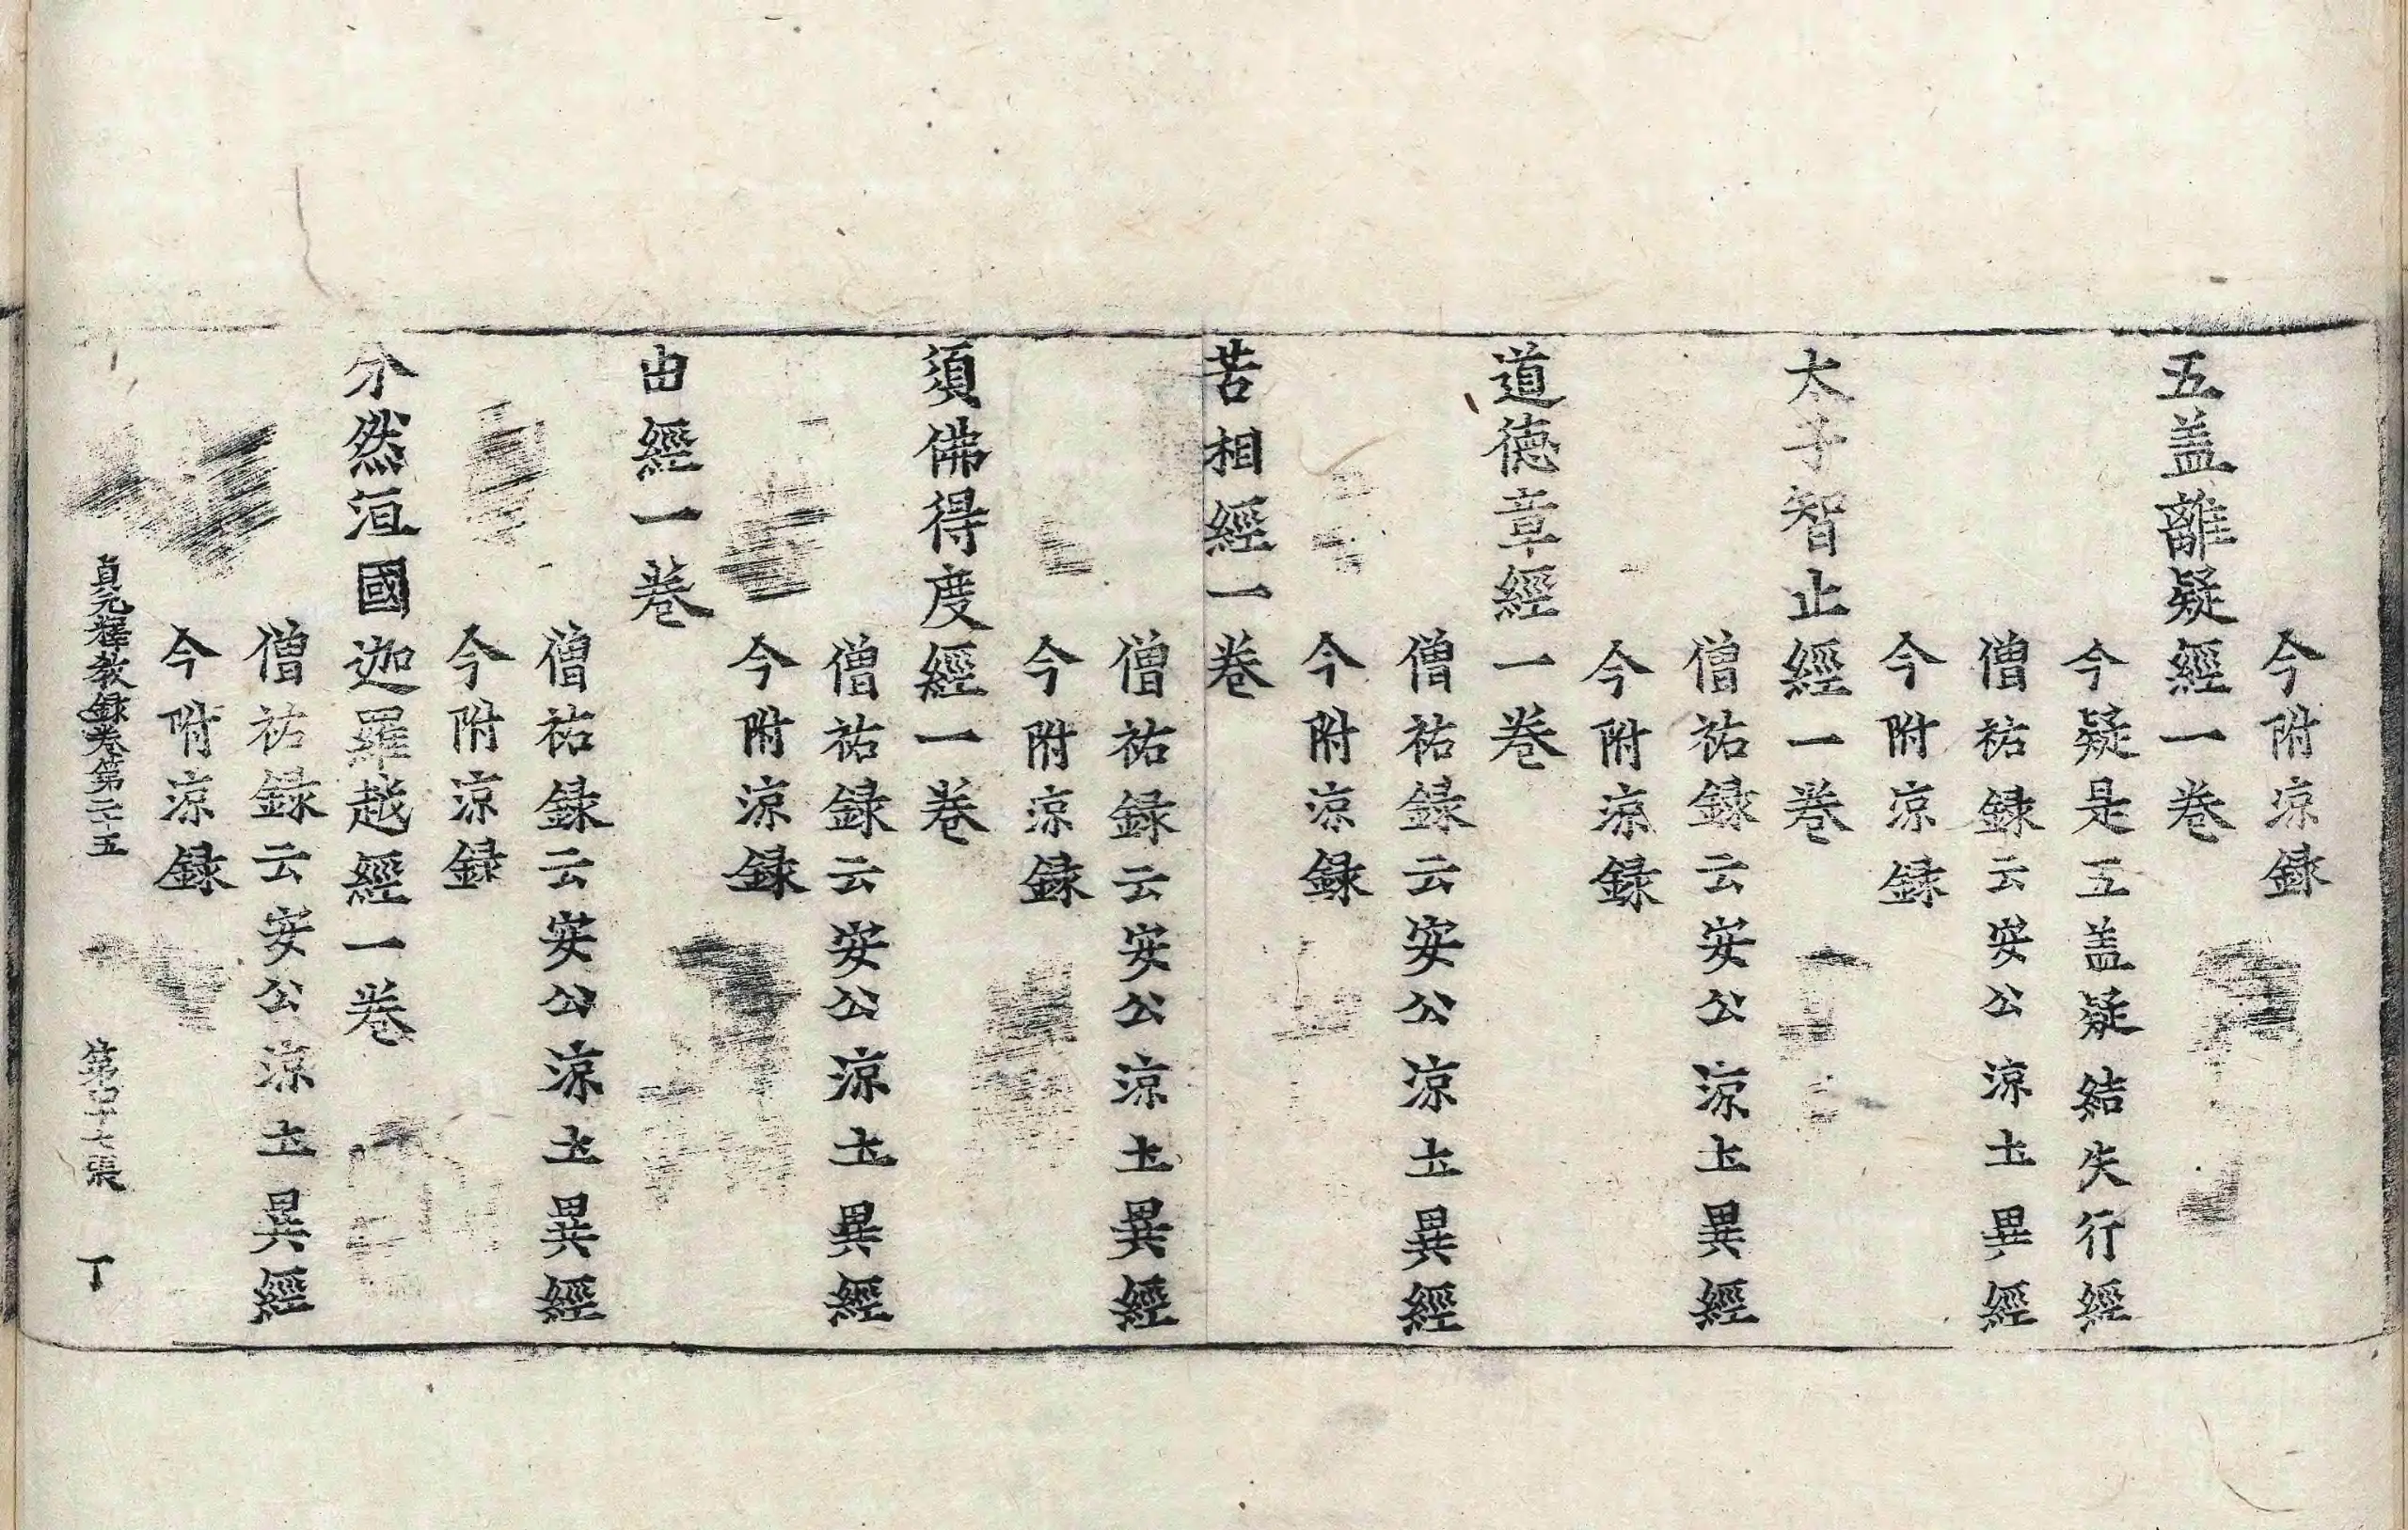 今附涼録
五盖離疑經一卷
今疑是五盖疑結失行經
僧祐録云安公涼土異經
今附涼録
太子智止經一卷
僧祐録云安公涼土異經
今附涼録
道德章經一卷
僧祐録云安公涼土異經
今附涼録
苦相經一卷
僧祐録云安公涼土異經
今附涼録
須佛得度經一卷
僧祐録云安公涼土異經
今附涼録
由經一卷
僧祐録云安公涼土異經
今附涼録
尒然洹國迦羅越經一卷
僧祐録云安公涼土異經
今附涼録
貞元釋教録卷第二十五 第 十七張 丁